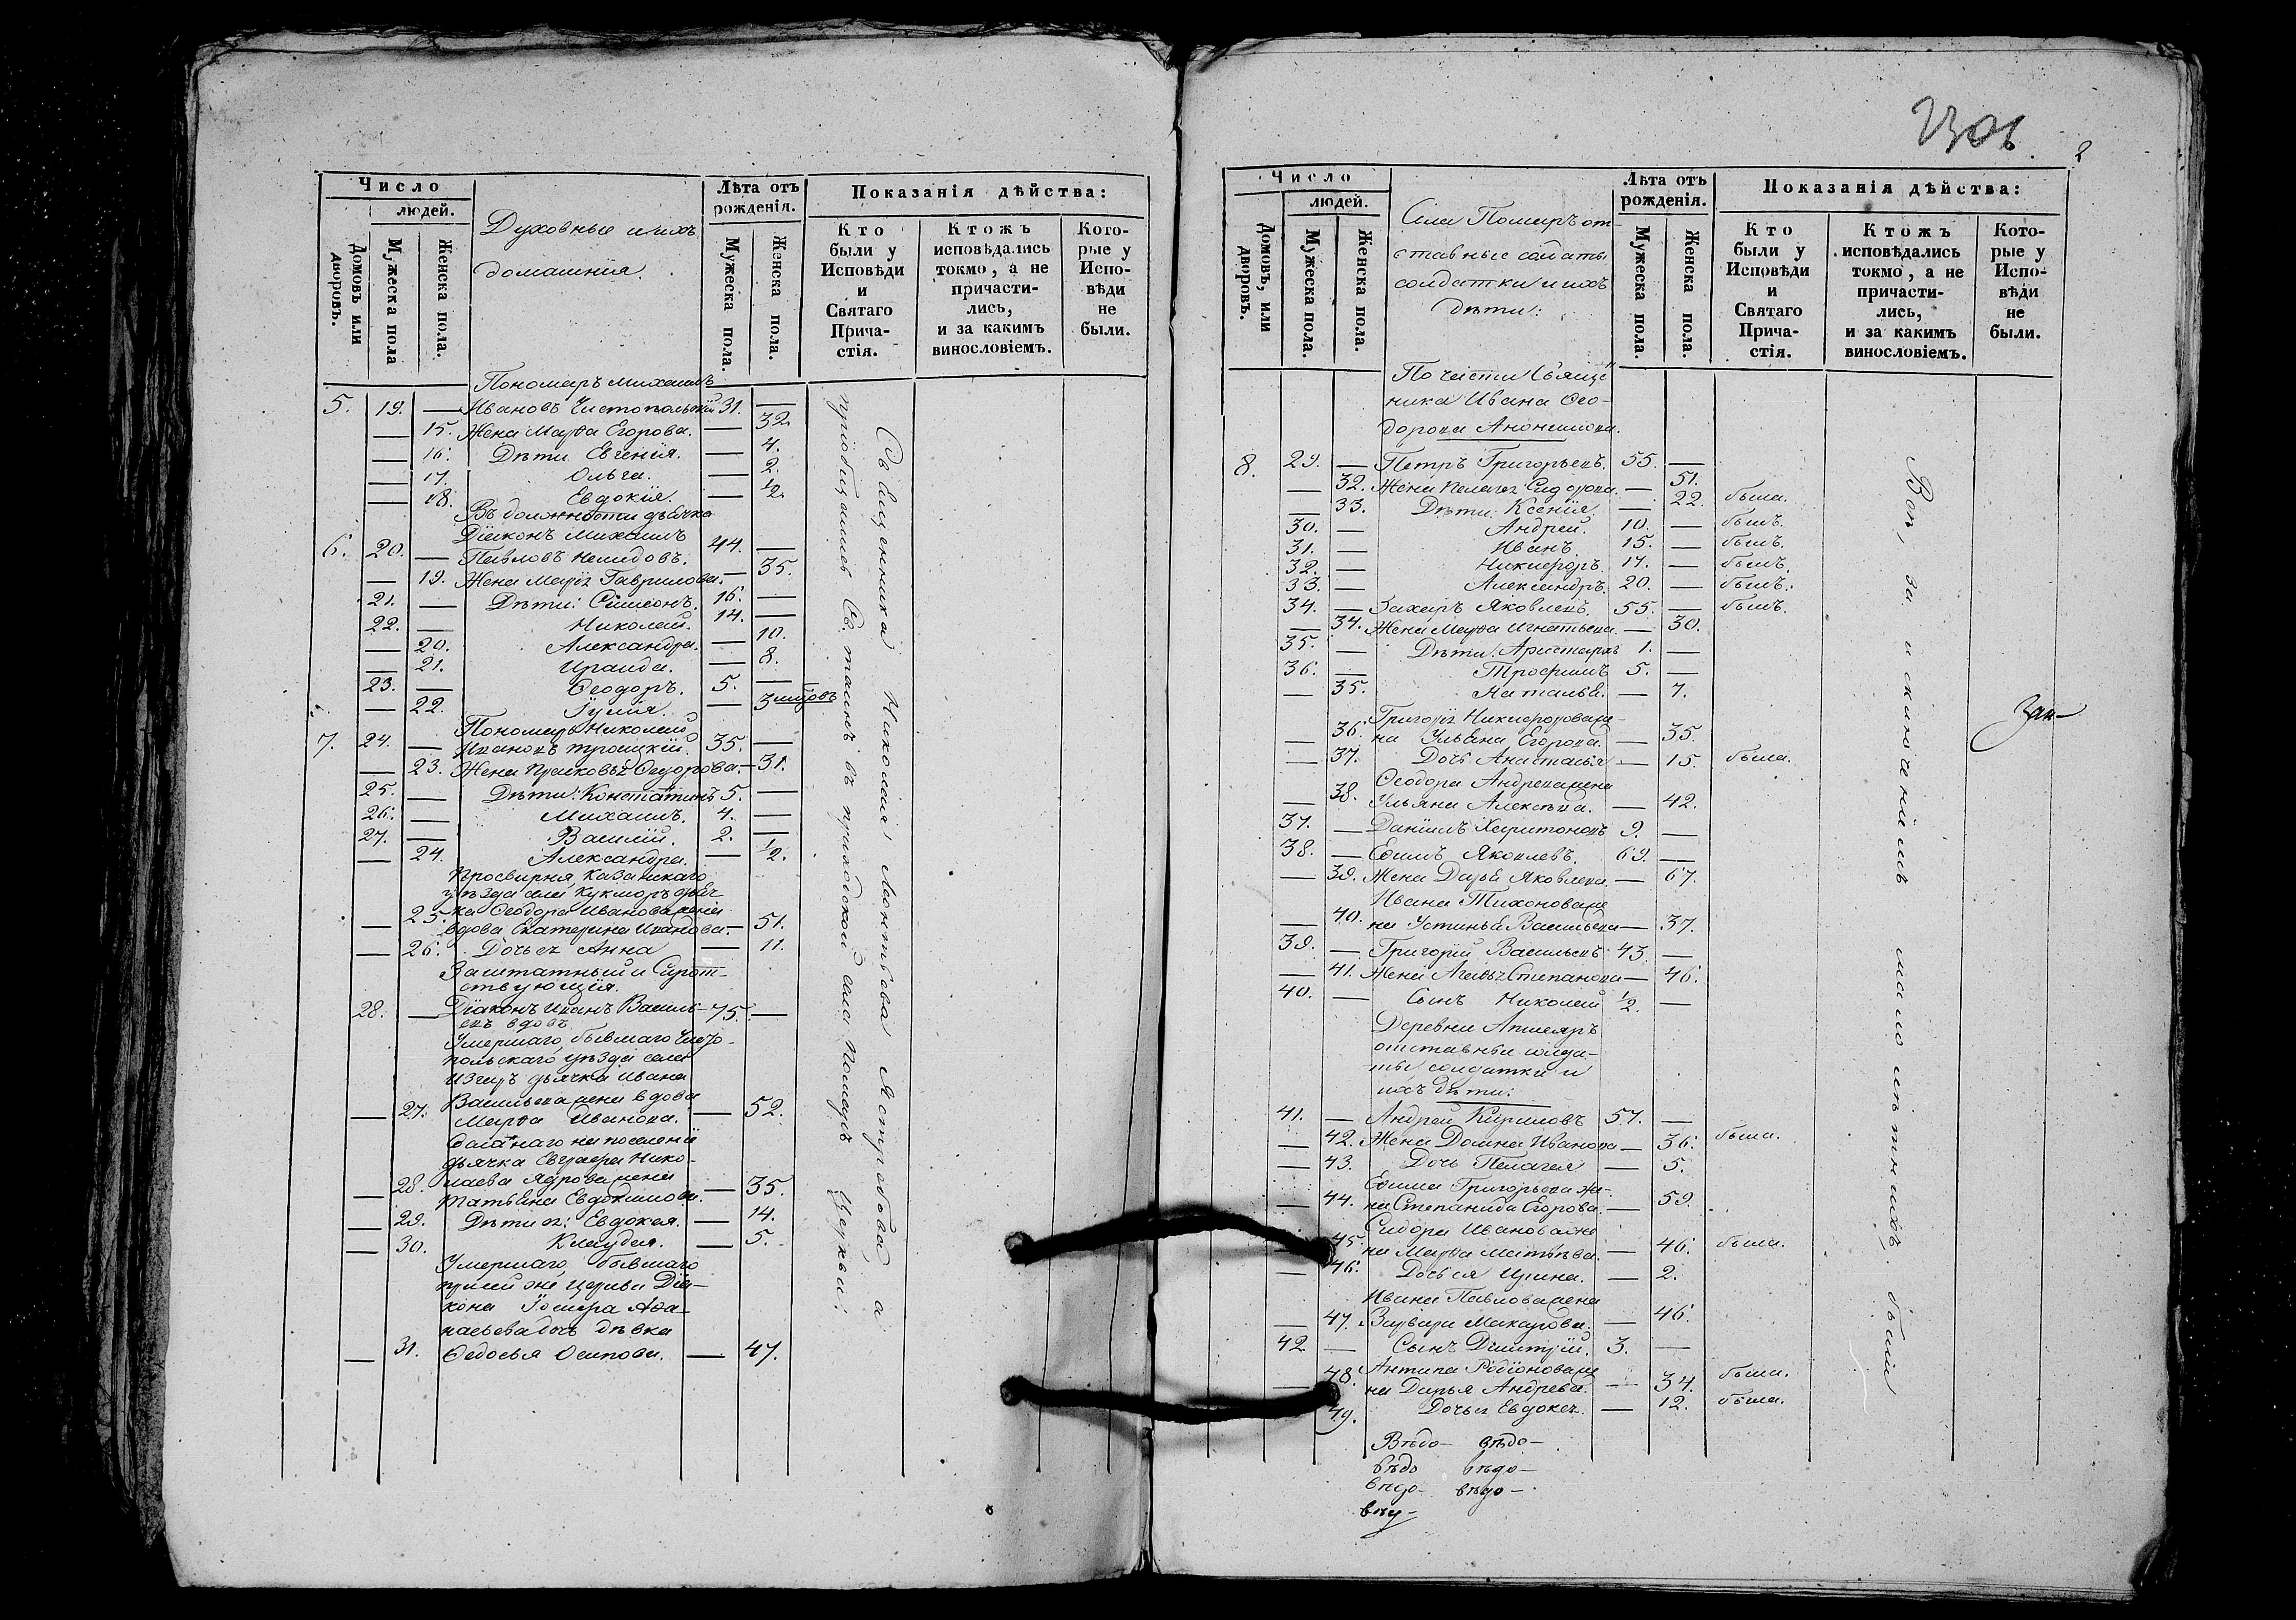 Число
людей.
Домовъ или дворовъ.
Мужеска пола
Женска пола.
Духовные и ихъ
домашнія.
Лѣта отъ
рожденія.
Мужеска пола.
Женска пола.
Показанія дѣйства:
Кто
были у
Исповѣди
и
Святаго
Прича-
стія.
Ктожъ
исповѣдались
токмо, а не
причасти-
лись,
и за какимъ
винословіемъ.
Кото-
рые у
Испо-
вѣди
не
были.
Пономарь Михаилъ
5. 19. — Ивановъ Чистопольскій 31. —
— 15. Жена Марѳа Егорова. — 32.
— 16. Дѣти Евгенія. — 4.
— 17. Ольга. — 2.
— 18. Евдокія. — 1/2.
Въ должности дьячка
Діаконъ Михаилъ
6. 20. — Павловъ Нелидовъ. 44. —
— 19. Жена Марія Гаврилова. — 35.
21. — Дѣти: Симеонъ. 16. —
22. — Николай. 14. —
— 20. Александра. — 10.
— 21. Ираида. — 8.
23. — Ѳеодоръ. 5. —
— 22. Іулія. — 3
Пономарь Николай
7. 24. — Ивановъ Троицкій. 35. —
— 23. Жена Прасковья Ѳедорова. — 31.
25. — Дѣти: Константинъ 5. —
26. — Михаилъ. 4. —
27. — Василій. 2. —
— 24. Александра. — 1/2.
Просвирня, Казанскаго
уѣзда села Кукморъ дьяч-
25. ка Ѳеодора Иванова жена
— вдова Екатерина Иванова. — 51.
— 26. Дочь ея Анна — 11.
Заштатный и Сирот-
ствующія.
28. — Діаконъ Иванъ Василь- 75. —
евъ вдовъ
Умершаго, бывшаго Чисто-
польскаго уѣзда села
Изгаръ дьячка Ивана
— 27. Васильева жена вдова — 52.
Марѳа Иванова.
Сосланнаго на поселеніе
дьячка Евграфа Нико-
— 28. лаева Ядрова жена — 35.
Татьяна Евдокимова.
— 29. Дѣти ея: Евдокея. — 14.
— 30. Клаудея. — 5.
Умершаго, бывшаго
при сей же церкви Діа-
кона Іосифа Аѳа-
насьева дочь дѣвка
— 31. Ѳедосья Осипова. — 47.
Священника Николая Леонтьева Ястребова а
пріобщались Св. таинъ въ приходской села Помаръ Церкви.
2
Число
людей.
Домовъ, или дворовъ.
Мужеска пола.
Женска пола.
Села Помаръ от-
ставные солдаты
солдатки и ихъ
дѣти:
Лѣта отъ
рожденія.
Мужеска пола.
Женска пола.
Показанія дѣйства:
Кто
были у
Исповѣди
и
Святаго
Прича-
стія.
Ктожъ
исповѣдались
токмо, а не
причасти-
лись,
и за какимъ
винословіемъ.
Кото-
рые у
Испо-
вѣди
не
были.
По части Священ-
ника Ивана Ѳео-
дорова
8. 29. — Петръ Григорьевъ. 55. —
— 32. Жена Пелагея Сидорова. — 51.
— 33. Дѣти: Ксенія — 22. была.
30. — Андрей. 10. — былъ.
31. — Иванъ. 15. — былъ.
32. — Никифоръ. 17. — былъ.
33. — Александръ. 20. — былъ.
34. — Захаръ Яковлевъ. 55. — былъ.
— 34. Жена Марѳа Игнатьева. — 30.
35. — Дѣти: Аристархъ 1. —
36. — Трофимъ 5. —
— 35. Наталья. — 7.
Григорія Никифорова же-
— 36. на Ульяна Егорова. — 35.
— 37. Дочь Анастасья — 15. была.
Ѳеодора Андреева жена
— 38. Ульяна Алексѣева. — 42.
37. — Даніилъ Харитоновъ 9. —
38. — Ефимъ Яковлевъ. 69. —
— 39. Жена Дарья Яковлева — 67.
Ивана Тихонова же
— 40. на Устинья Васильева — 37.
39. — Григорій Васильевъ 43. —
— 41. Жена Агафья Степанова — 46.
40. — Сынъ Николай 1/2. —
Деревни Апшеяръ
отставные солда-
ты солдатки и
ихъ дѣти:
41. — Андрей Кириловъ 57. —
— 42. Жена Домна Иванова — 36. была.
— 43. Дочь Пелагея — 5.
Ефима Григорьева же-
— 44. на Степанида Егорова. — 59.
Сидора Иванова же
45. на Марѳа Матвѣева. — 46. была.
— 46. Дочь ея Ирина. — 2.
Ивана Павлова жена
— 47. Варвара Макарова. — 46.
42 — Сынъ Димитрій. 3. —
Антипа Родіонова же
— 48. на Дарья Андреева. — 34. была.
49. Дочь ея Евдокея. — 12. была.
Вѣдо- вѣдо-
вѣдо вѣдо-
вѣдо- вѣдо-
Всѣ, за исключеніемъ малолѣтнихъ, были